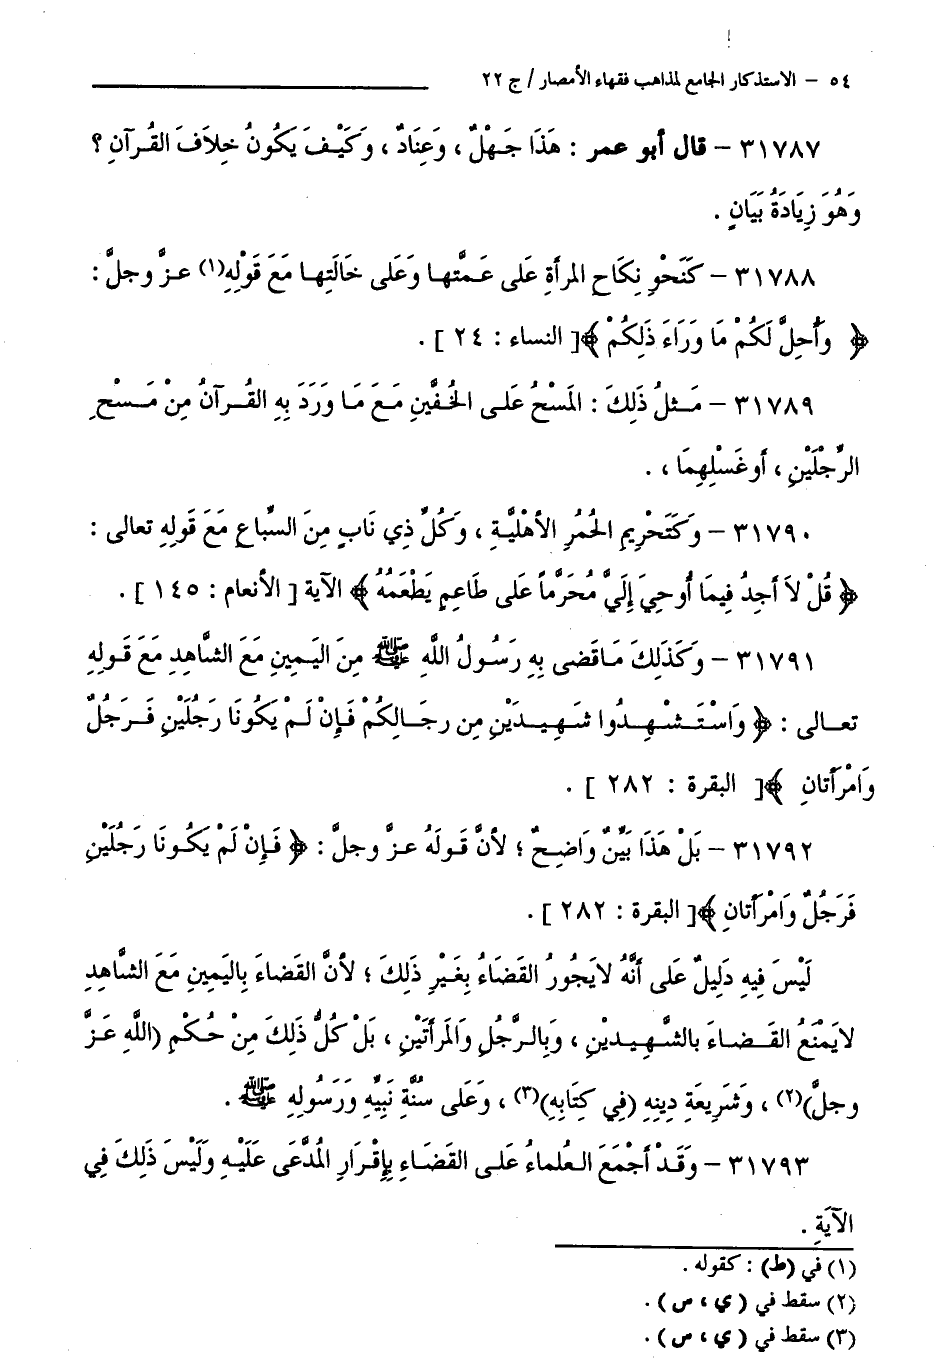 ٥٤ – الاستذكار الجامع لمذاهب فقهاء الأمصار / ج ٢٢
٣١٧٨٧ – قال أبو عمر : هَذَا جَهْلٌ ، وَعِنَادٌ ، وَكَيْفَ يَكُونُ خِلاَفَ القُرآنِ ؟
وَهُوَ زِيَادَةُ بَيَانٍ .
٣١٧٨٨ – كَنَحْوِ نِكَاحِ المرأَةِ عَلى عَمَّتها وَعَلى خَالَتِها مَعَ قَوْلِهِ(١) عزَّ وجلَّ :
﴿ وَأُحِلَّ لَكُمْ مَا وَرَاءَ ذَلِكُمْ ﴾[ النساء : ٢٤ ] .
٣١٧٨٩ – مَثلُ ذَلِكَ : المَسْحُ عَلى الخُفَّينِ مَعَ مَا وَرَدَ بِهِ القُرآنُ مِنْ مَسْحِ
الرِّجْلَيْنِ ، أَو غَسْلِهِمَا ، .
٣١٧٩٠ – وَكَتَحْرِيمِ الحُمُرِ الأهْلِيَّةِ ، وَكُلِّ ذِي نَابٍ مِنَ السِّبَاعِ مَعَ قَولِهِ تعالى :
﴿ قُلْ لاَ أجِدُ فِيمَا أُوحِيَ إِلَيَّ مُحَرَّماً عَلى طَاعِمٍ يَطْعَمُهُ ﴾ الآية [ الأنعام : ١٤٥ ] .
٣١٧٩١ – وَكَذَلِكَ مَاقَضى بِهِ رَسُولُ اللَّهِ ﷺ مِنَ اليَمِينِ مَعَ الشَّاهِدِ مَعَ قَولِهِ
تعالى : ﴿ وَاسْتَشْهِدُوا شَهِيدَيْنِ مِن رِجَالِكُمْ فَإِنْ لَمْ يَكُونَا رَجُلَيْنِ فَرَجُلٌ
وَامْرَأَتانِ ﴾[ البقرة : ٢٨٢ ] .
٣١٧٩٢ – بَلْ هَذَا بَيِّنٌ وَاضِحٌ ؛ لأنَّ قَولَهُ عزَّ وجلَّ : ﴿ فَإِنْ لَمْ يَكُونَا رَجُلَيْنِ
فَرَجُلٌ وَامْرَأَتانِ ﴾[ البقرة : ٢٨٢ ] .
لَيْسَ فِيهِ دَلِيلٌ عَلى أَنَّهُ لايَجُورُ القَضَاءُ بِغَيْرِ ذَلِكَ ؛ لأنَّ القَضَاءَ بِاليَمِينِ مَعَ الشَّاهِدِ
لايَمْنَعُ القَضاءَ بالشَّهِيدَيْنِ ، وَبِالرَّجُلِ وَالمَرأَتَيْنِ ، بَلْ كُلُّ ذَلِكَ مِنْ حُكْمِ (اللَّهِ عَزَّ
وجلَّ)(٢) ، وَشَرِيعَةِ دِينِهِ (فِي كِتَابِهِ)(٣) ، وَعَلى سُنَّةِ نَبِيِّهِ وَرَسُولِهِ ﷺ .
٣١٧٩٣ – وَقَدْ أَجْمَعَ العُلماءُ عَلى القَضَاءِ بِإِقْرَارِ المُدَّعَى عَلَيْهِ وَلَيْسَ ذَلِكَ فِي
الآيَةِ .
(١) في (ط) : كقوله .
(٢) سقط في ( ي ، س ) .
(٣) سقط في ( ي ، س ) .